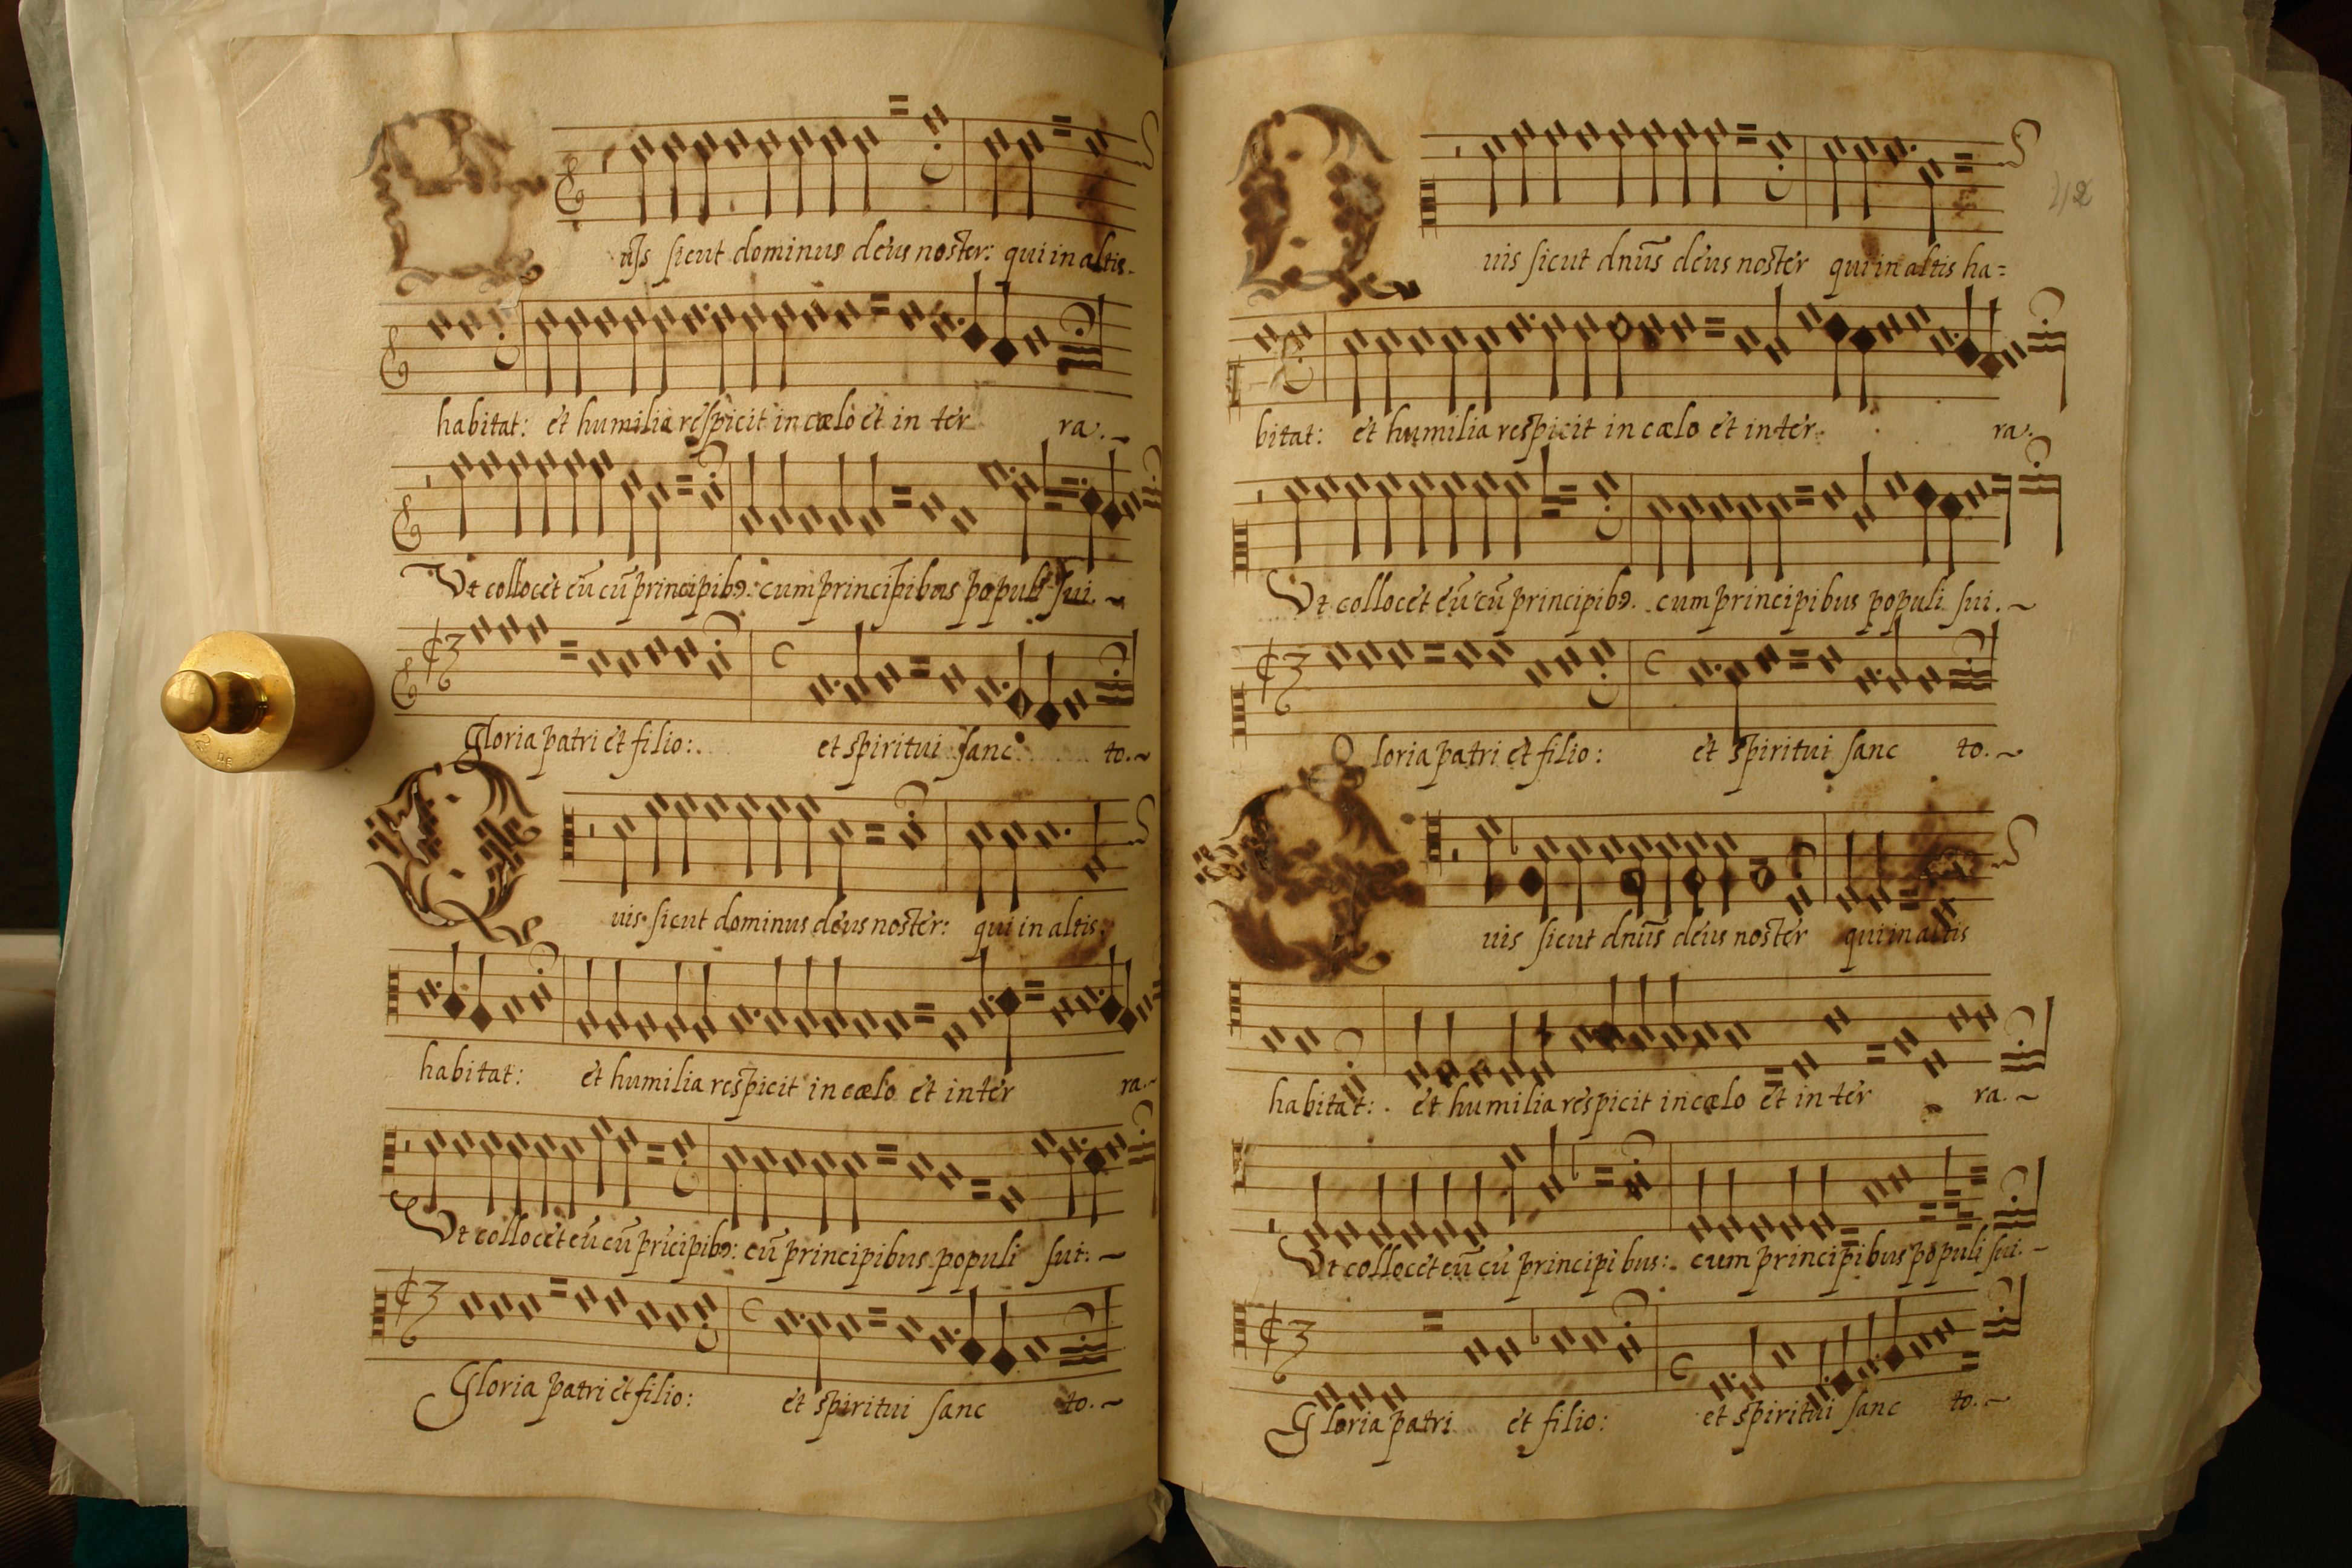 uis sicut dominus deus noster: qui in altis
habitat: et humilia respicit in cælo et in ter ra.
Vt collocet eū cū principibꝰ: cum principibus populi sui.
Gloria patri et filio: et spiritui sanc to.
Q uis sicut dominus deus noster: qui in altis:
habitat: et humilia respicit in cælo et in ter ra.
Vt collocet eū cū pricipibꝰ: cū principibus populi sui.
Gloria patri et filio: et spiritui sanc to.
Q uis sicut dnūs deus noster qui in altis ha=
bitat: et humilia respicit in cælo et in ter ra.
Vt collocet eū cū principibꝰ. cum principibus populi sui.
Gloria patri et filio: et spiritui sanc to.
uis sicut dnūs deus noster qui in altis
habitat: et humilia respicit in cælo et in ter ra.
Vt collocet eū cū principibus: cum principibus populi sui.
Gloria patri et filio: et spiritui sanc to.